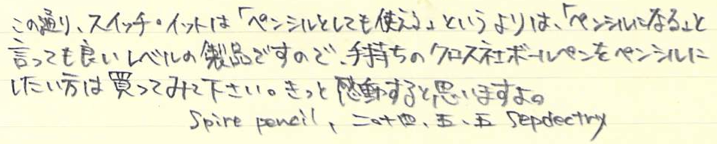 この通り、スイッチ・イットは「ペンシルとしても使える」というよりは、「ペンシルになる」と
言っても良いレベルの製品ですので、手持ちのクロス社ボールペンをペンシルに
したい方は買ってみて下さい。きっと感動すると思いますよ。
Spire pencil, 二〇十四、五、五 Sepdectry